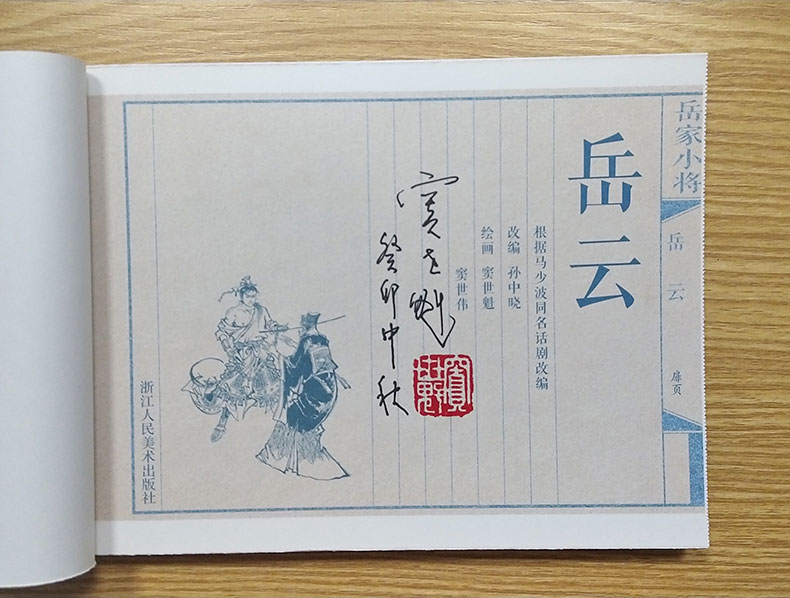 岳家小将
岳云
扉页
岳云
根据马少波同名话剧改编
改编 孙中晓
绘画 窦世魁
窦世伟
窦世魁
癸卯中秋
浙江人民美术出版社